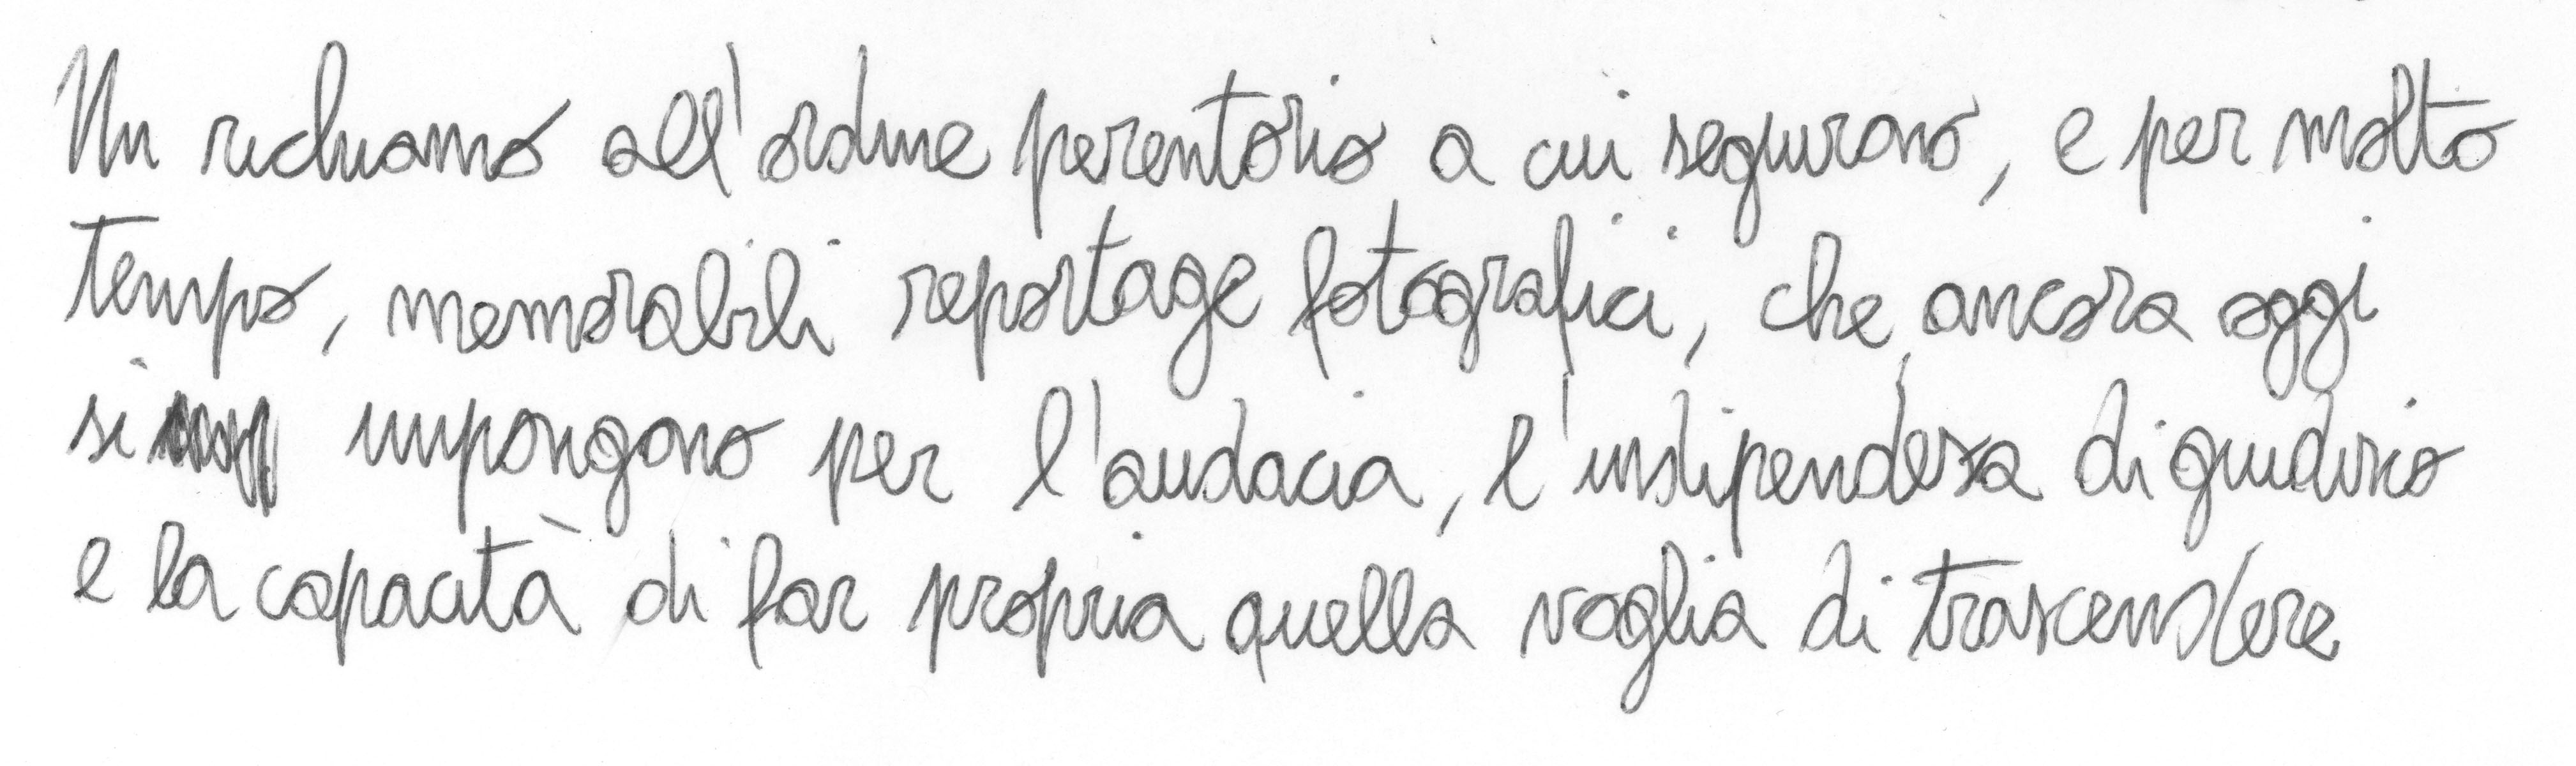 Un richiamo all'ordine perentorio a cui seguirono, e per molto
tempo, memorabili reportage fotografici, che, ancora oggi
si impongono per l'audacia, l'indipendenza di giudizio
e la capacità di far propria quella voglia di trascendere